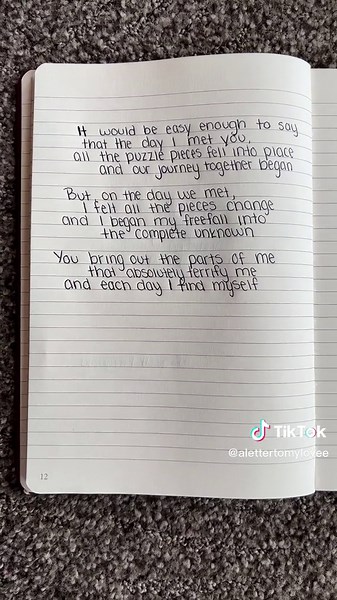 It would be easy enough to say
that the day I met you,
all the puzzle pieces fell into place
and our journey together began
But, on the day we met,
I felt all the pieces change
and I began my freefall into
the complete unknown
You bring out the parts of me
that absolutely terrify me
and each day I find myself
TikTok
@alettertomylovee
12